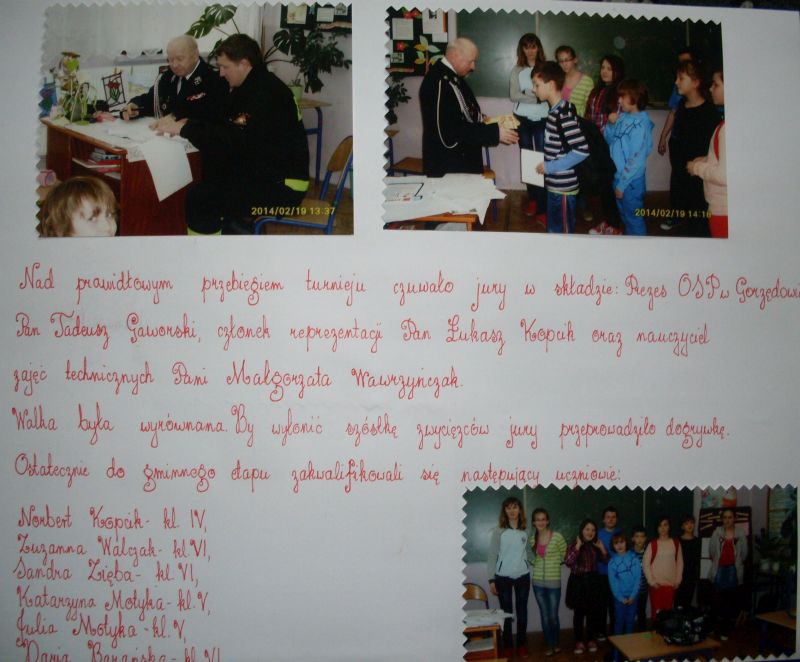 2014/02/19 13:37
2014/02/19 14:16
Nad prawidłowym przebiegiem turnieju czuwało jury w składzie: Prezes OSP w Gorzędowi
Pan Tadeusz Gaworski, członek reprezentacji Pan Łukasz Kopcik oraz nauczyciel
zajęć technicznych Pani Małgorzata Wawrzyńczak.
Walka była wyrównana. By wyłonić szóstkę zwycięzców jury przeprowadziło dogrywkę.
Ostatecznie do gminnego etapu zakwalifikowali się następujący uczniowie:
Norbert Kopcik - kl. IV,
Zuzanna Walczak - kl. VI,
Sandra Zięba - kl. VI,
Katarzyna Motyka - kl. V,
Julia Motyka - kl. V,
Daria Barańska - kl. VI